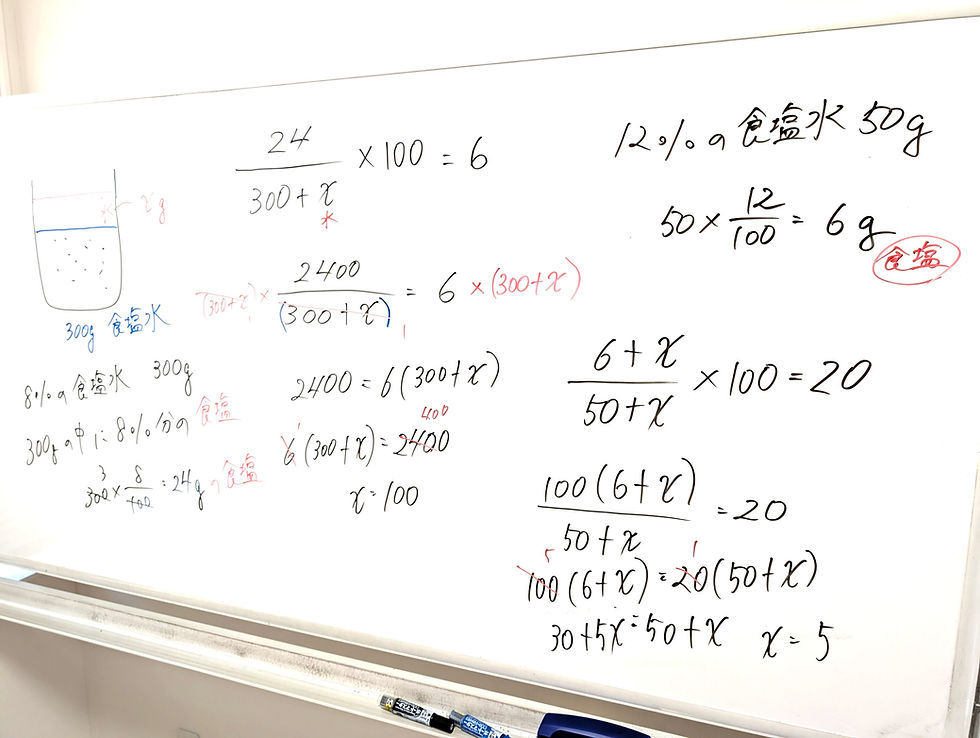 水 xg
300g 食塩水
8%の食塩水 300g
300gの中に8%分の食塩
3
300 × 8/100 = 24gの食塩
24/(300+x) × 100 = 6
水
(300+x) × 2400/(300+x) = 6 × (300+x)
1
2400 = 6(300+x)
1 400
6(300+x) = 2400
x = 100
12%の食塩水 50g
50 × 12/100 = 6g
食塩
(6+x)/(50+x) × 100 = 20
100(6+x)/(50+x) = 20
5 1
100(6+x) = 20(50+x)
30+5x = 50+x x = 5